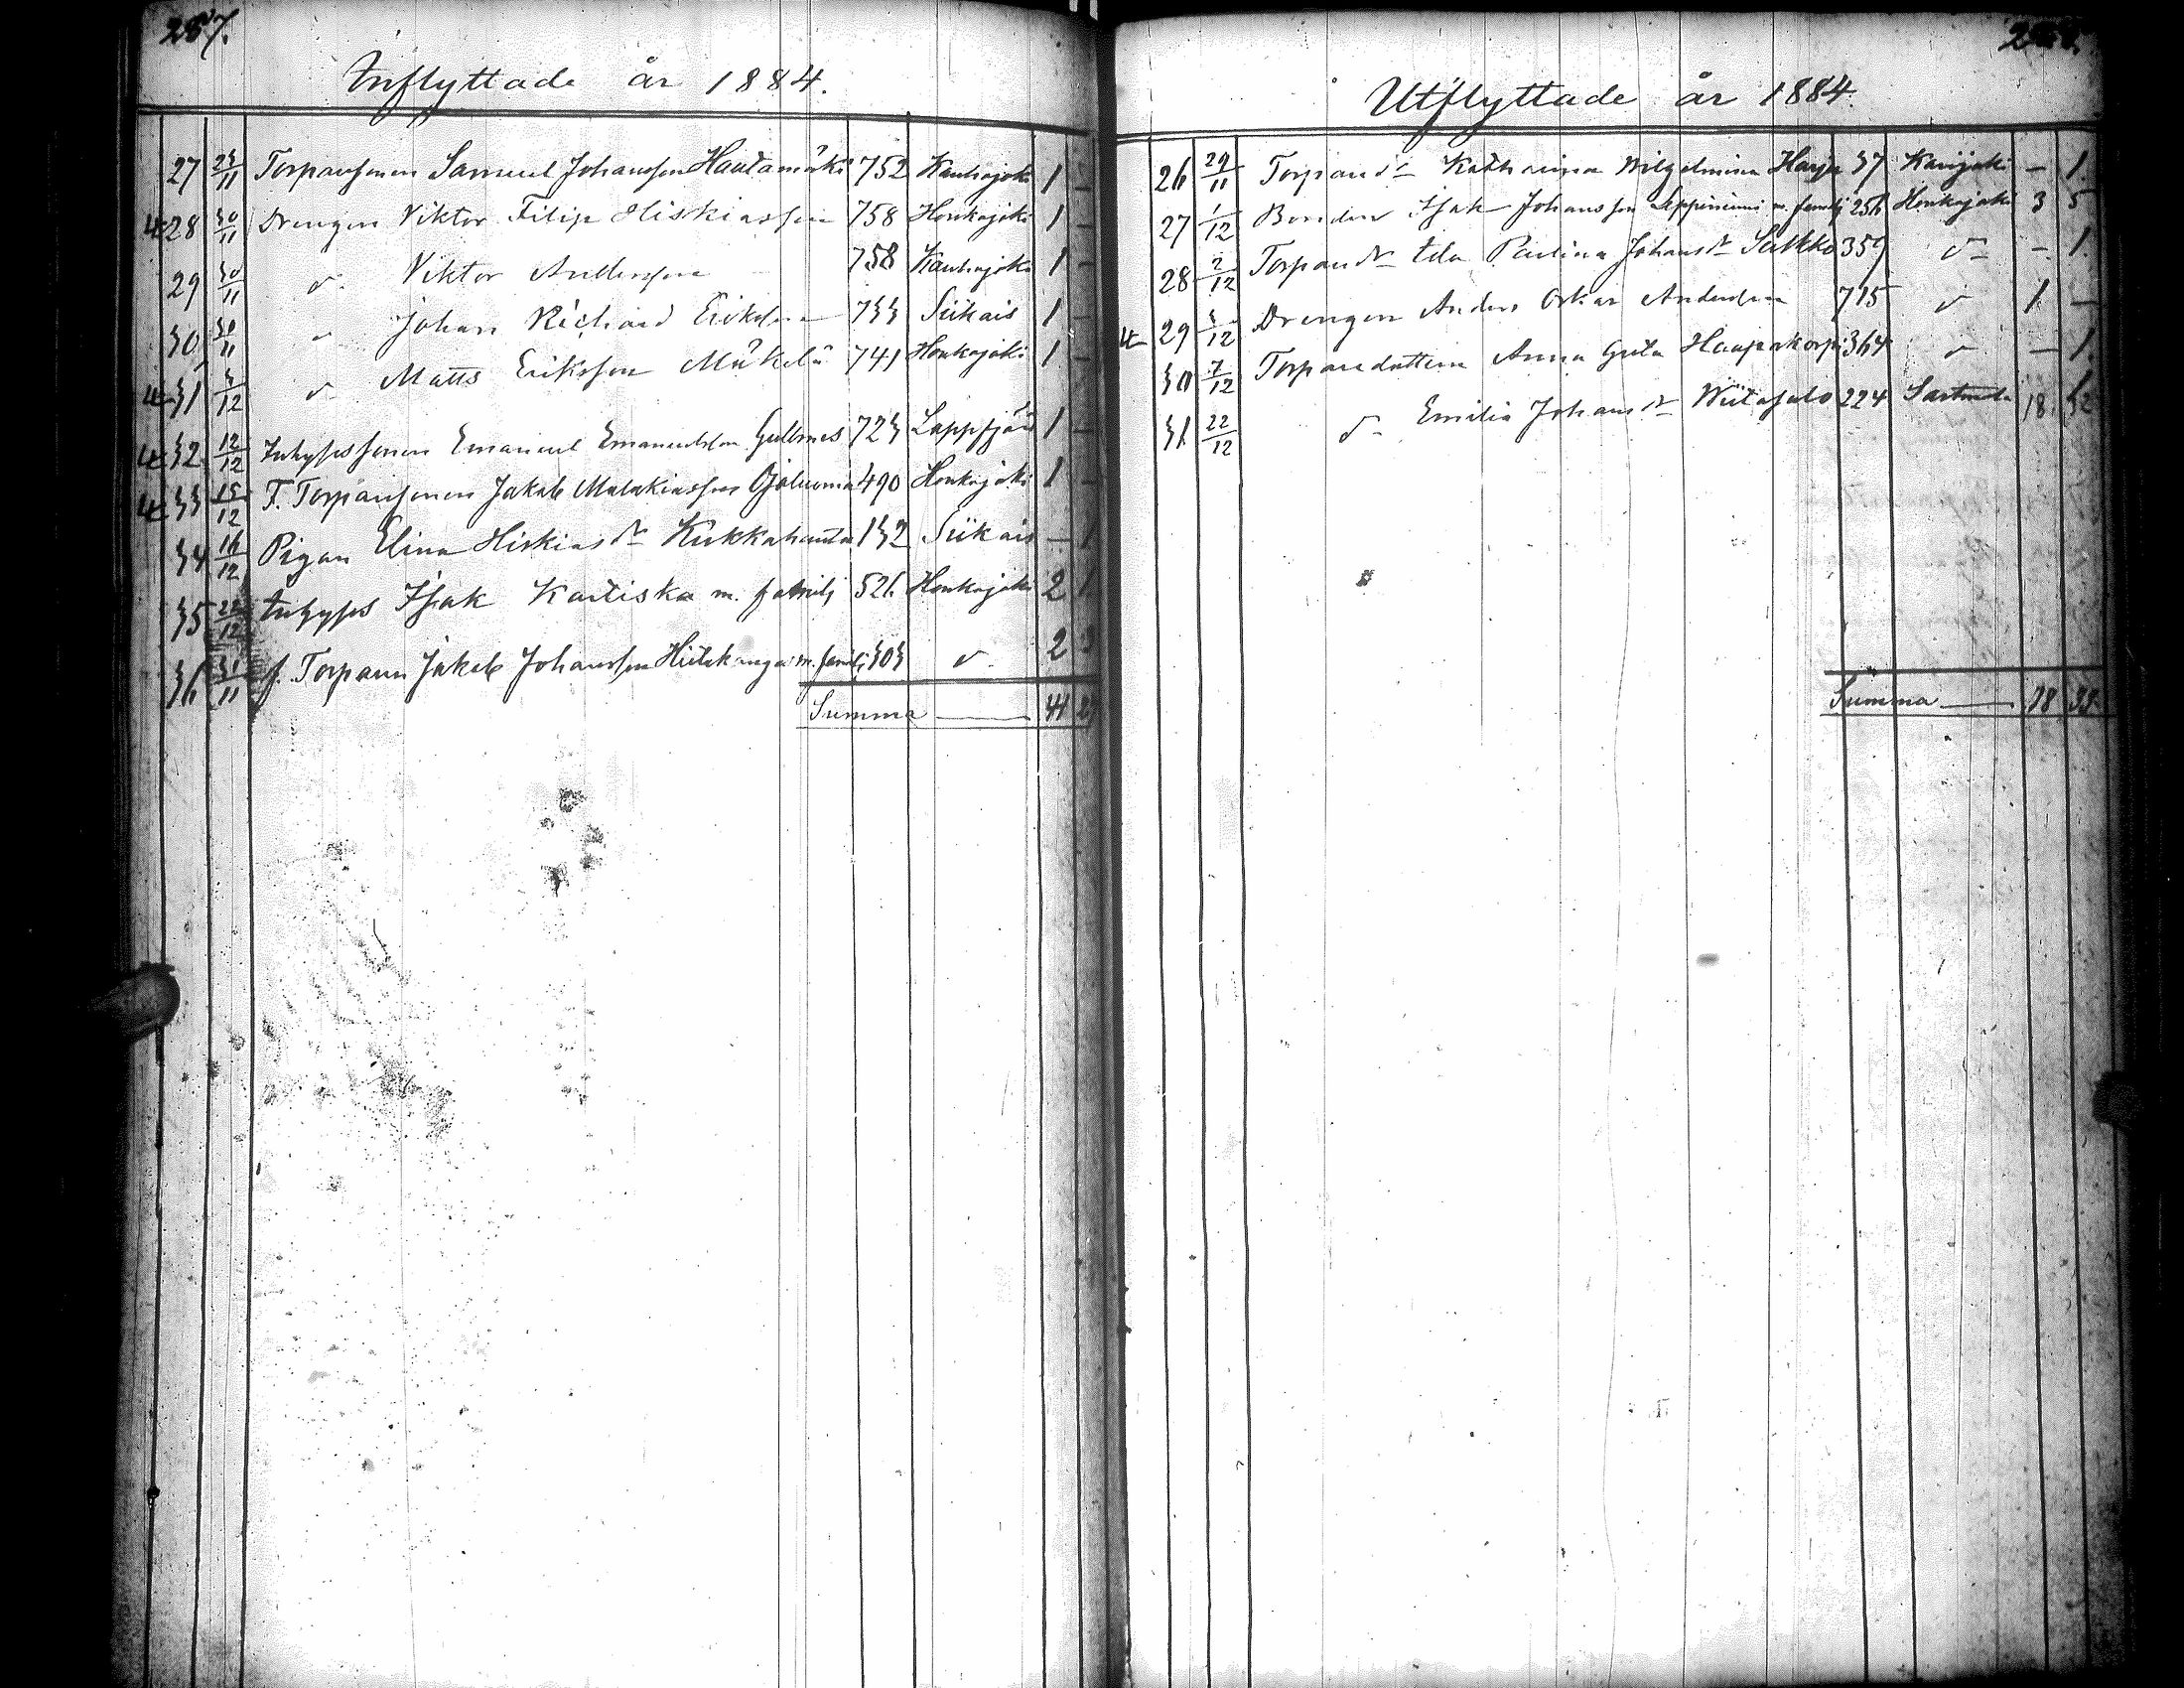 257.
Inflyttade år 1884.
27 23/11 Torparesonen Samuel Johansson Hautamäki 752 Kauhajoki 1 -
28 30/11 Drengen Viktor Filip Hiskiasson 758 Honkajoki 1 -
29 30/11 d:o Viktor Andersson 758 Kauhajoki 1 -
30 30/11 " Johan Richard Eriksson 733 Siikais 1 -
31 3/12 d:o Matts Eriksson Mäkelä 741 Honkajoki 1 -
32 12/12 Inhysessonen Emanuel Emanuelsson Gullnes 723 Lappfjärd 1 -
33 15/12 F. Torparesonen Jakob Malakiasson Ojaluoma 490 Honkajoki 1 -
34 16/12 Pigan Elina Hiskiasdr Kukkahauta 132 Siikais - 1
35 22/12 Inhyses Isak Kartiska m. familj 526 Honkajoki 2 1
36 31/11 f. Torparen Jakob Johansson Hietakangas m. familj 303 d:o 2
Summa 41
Utflyttade år 1884.
26 29/11 Torparedr Katharina Wilhelmina Harju 37 Karijoki - 1.
27 1/12 Bonden Isak Johansson Leppiniemi m. familj 256 Honkajoki 3 5
28 2/12 Torparedr Ida Paulina Johansdr 359 d:o - 1.
29 3/12 Drengen Anders Oskar Andersson 715 d:o 1 -
30 7/12 Torparedottern Anna Greta Haapakorpi 364 d:o - 1.
31 22/12 d:o Emilia Johansdr Wiitasalo 224 18. 32
Summa 18